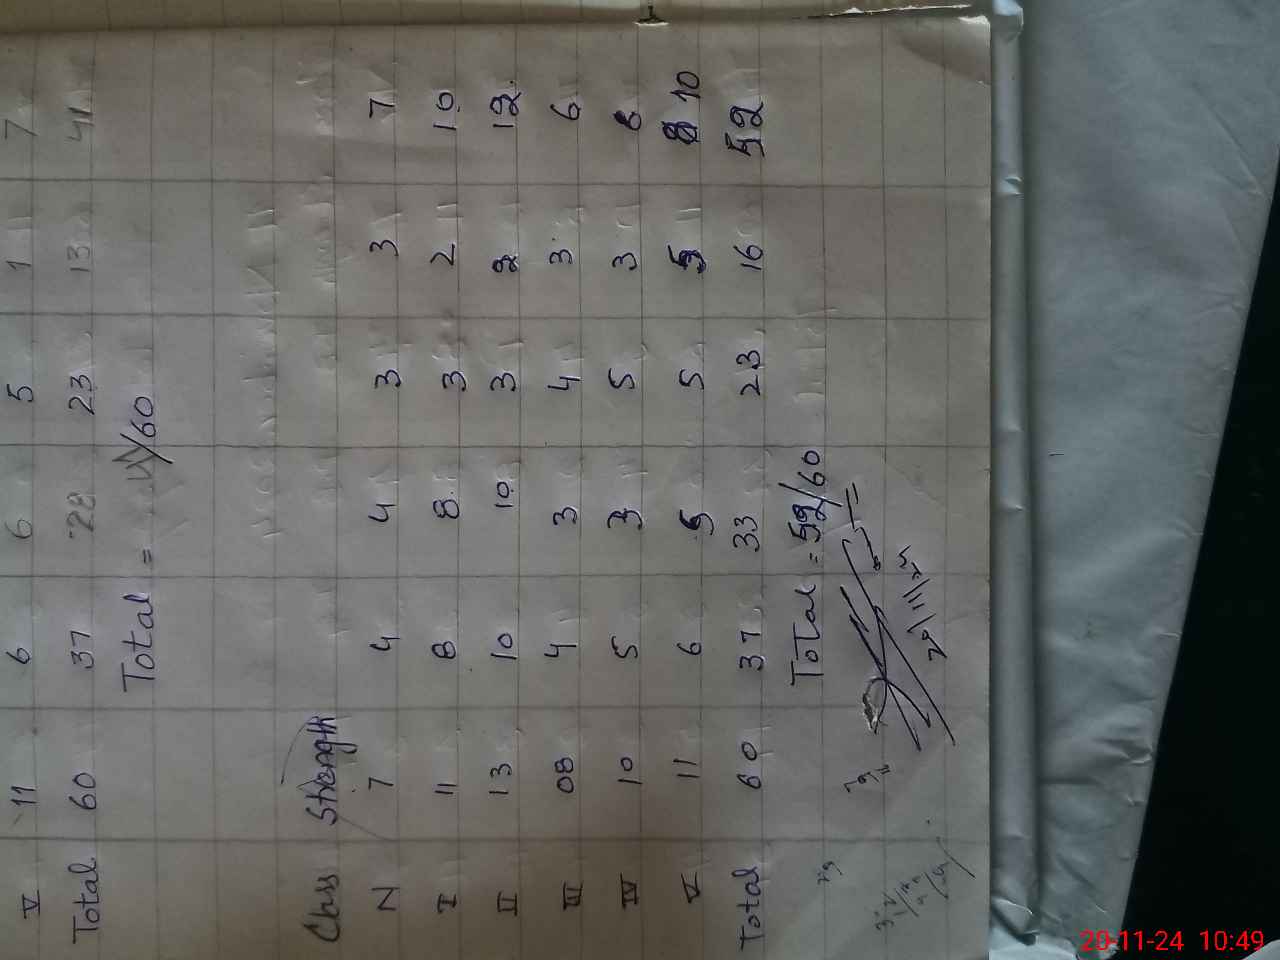 V 11 6 6 5 1 7
Total 60 37 28 23 13 41
Total = /60
Class Strength
N 7 4 4 3 3 7
I 11 8 8 3 2 10
II 13 10 10 3 2 12
III 08 4 3 4 3 6
IV 10 5 3 5 3 6
V 11 6 5 5 5 10
Total 60 37 33 23 16 52
Total = 52/60
20/11/24
20-11-24 10:49